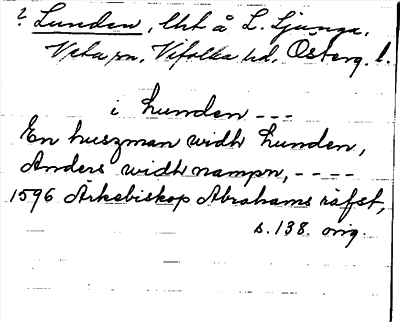 ? Lunden, lht å L. Ljunga,
Veta sn, Vifolka hd, Österg. l.
i Lunden ---
En huszman widh Lunden,
Anders widh nampn, ----
1596 Ärkebiskop Abrahams räfst,
s. 138. orig.